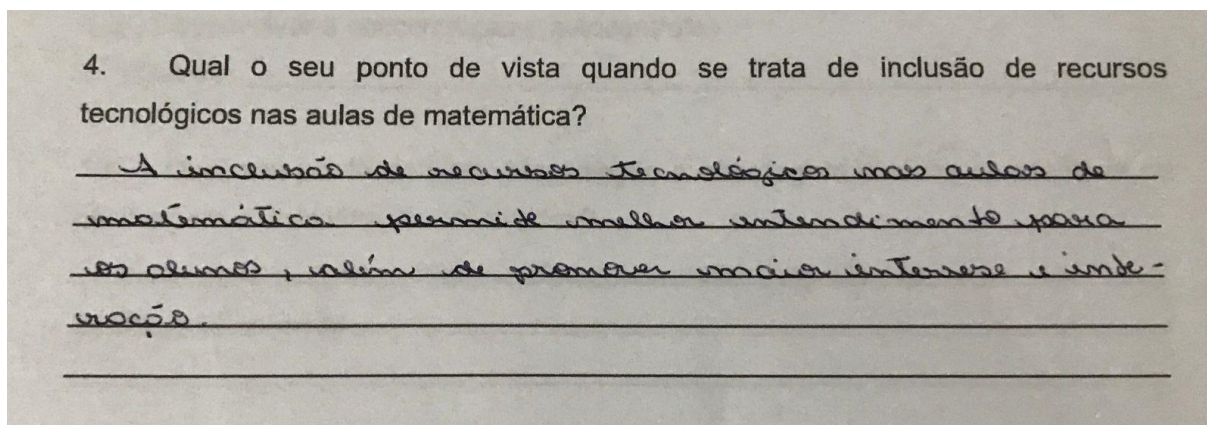 4. Qual o seu ponto de vista quando se trata de inclusão de recursos
tecnológicos nas aulas de matemática?
A inclusão de recursos tecnológicos nas aulas de
matemática permide melhor entendimento para
os alunos, além de promover maior interrese e inde-
ração.